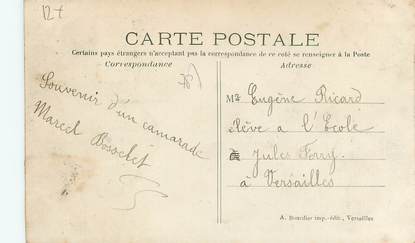 12+
CARTE POSTALE
Certains pays étrangers n'acceptant pas la correspondance de ce coté se renseigner à la Poste
Correspondance
Adresse
78
Souvenir d'un camarade
Marcel
Mr Eugène Ricard
élève a l'Ecole
Jules Ferry.
à Versailles
A. Bourdier imp.-édit., Versailles